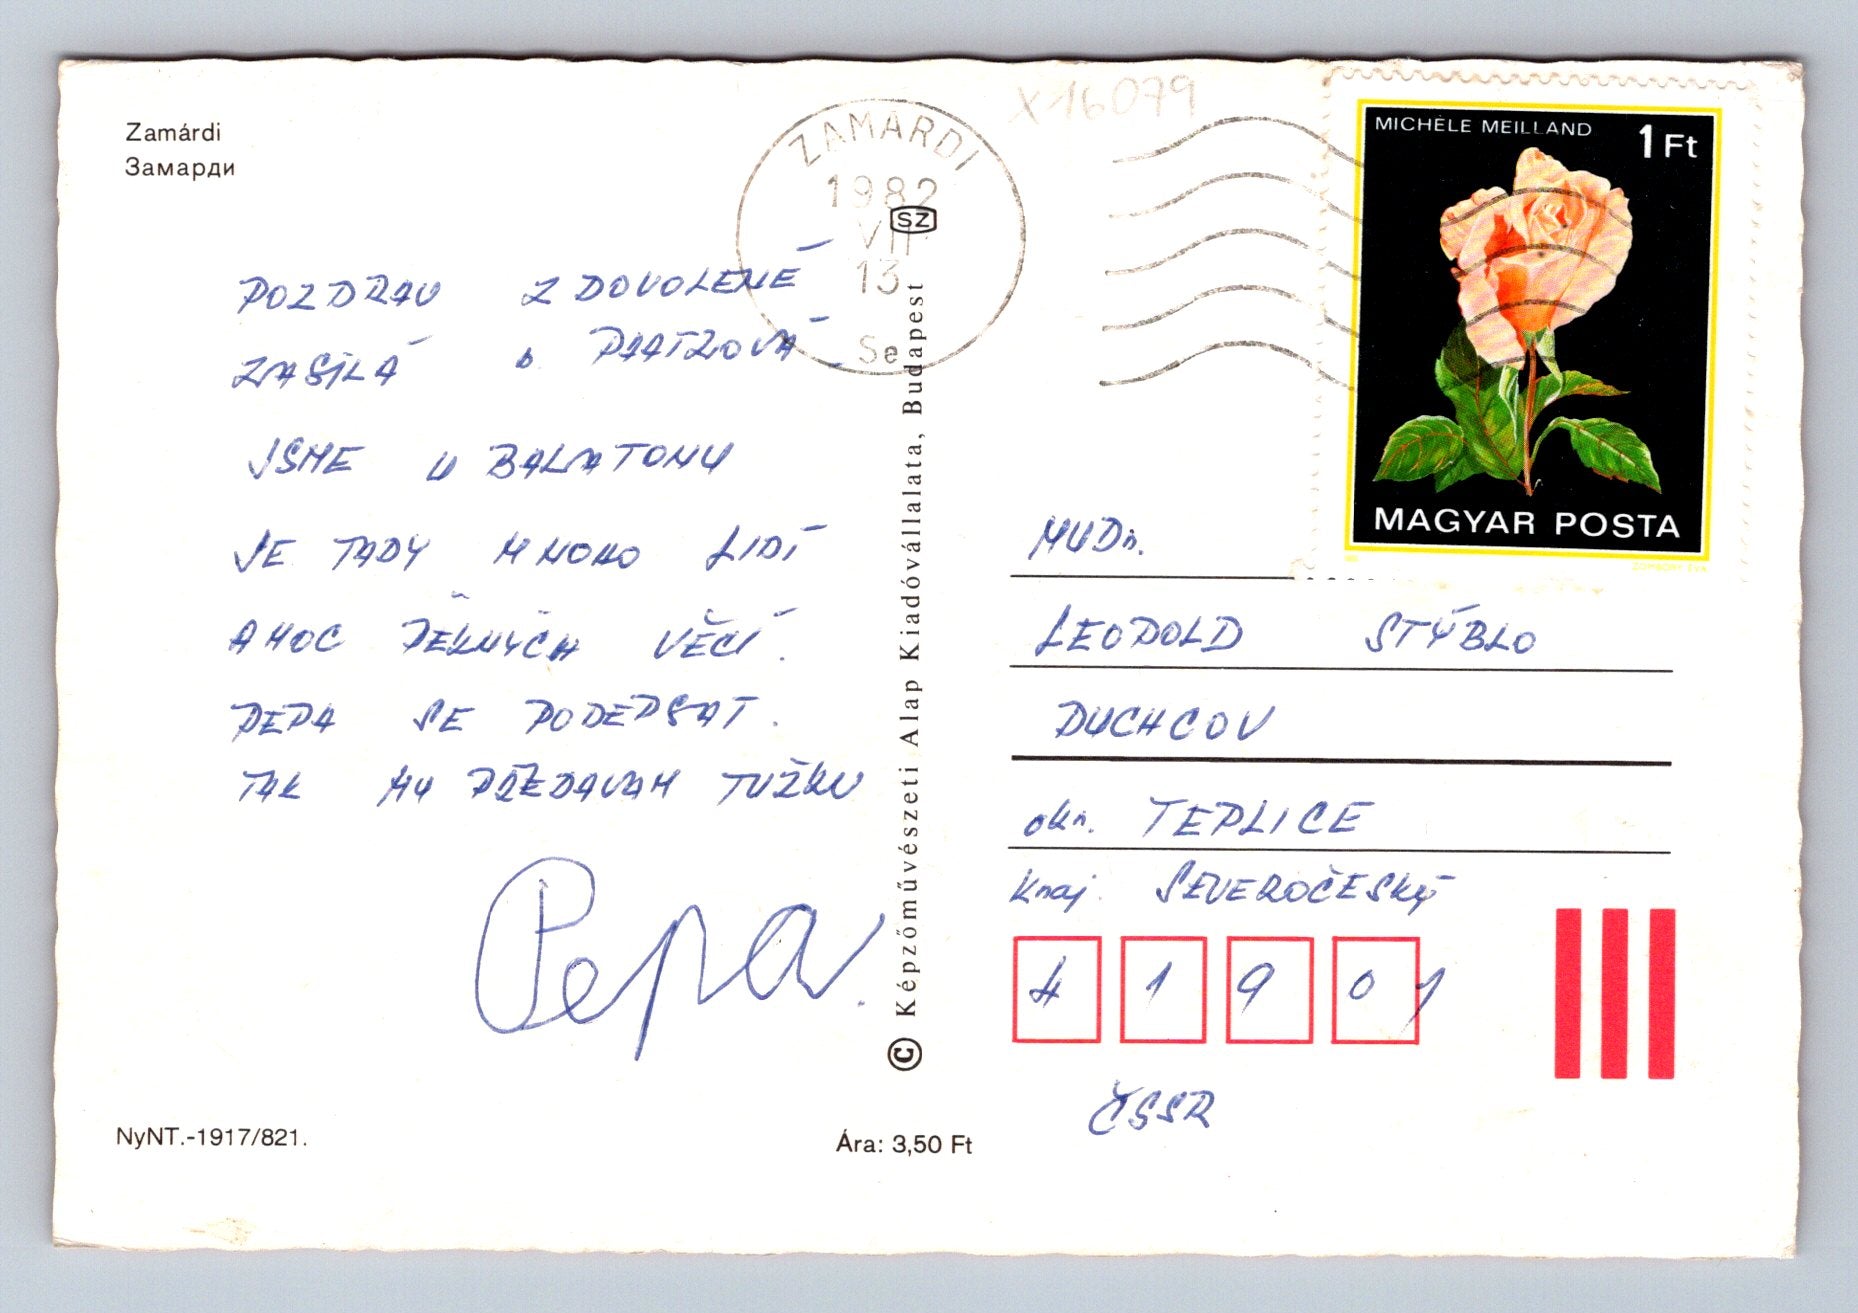 Zamárdi
Замарди
X16079
ZAMÁRDI
1982
VII
13
Se
SZ
MICHÈLE MEILLAND 1 Ft
MAGYAR POSTA
ZOMBORY ÉVA
POZDRAV Z DOVOLENÉ
ZASÍLÁ
JSME U BALATONU
JE TADY MNOHO LIDÍ
A MOC PĚKNÝCH VĚCÍ.
PEPA SE PODEPSAT.
TAK MU PŘEDAVAM TUŽKU
Pepa.
© Képzőművészeti Alap Kiadóvállalata, Budapest
MUDr.
LEOPOLD STÝBLO
DUCHCOV
okr. TEPLICE
Kraj. SEVEROČESKÝ
4 1 9 0 1
ČSSR
NyNT.-1917/821.
Ára: 3,50 Ft